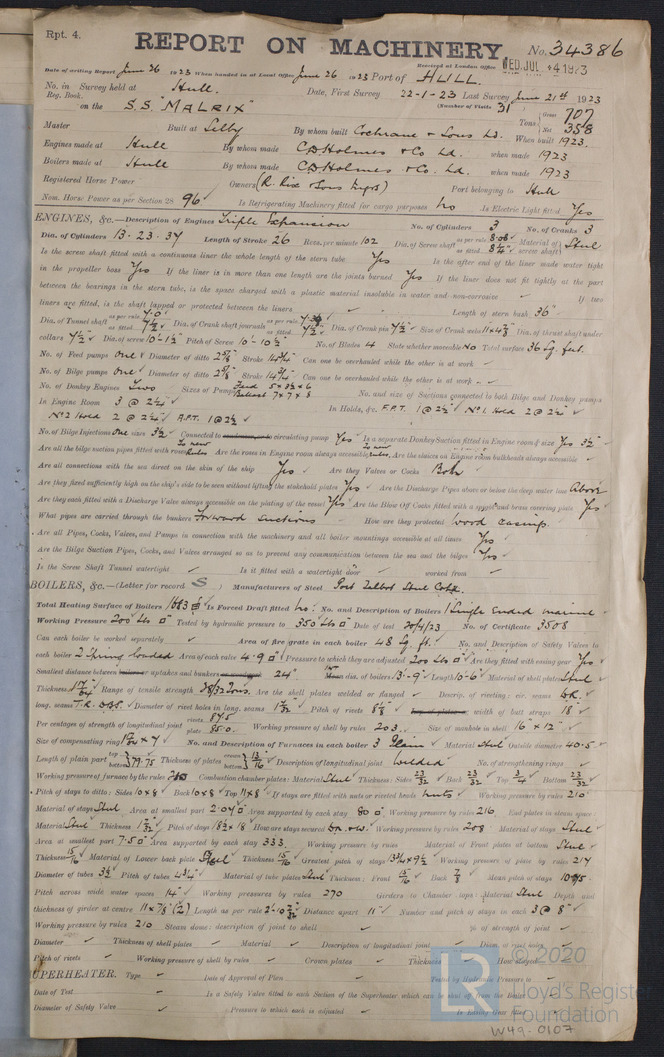 Rpt. 4.
REPORT ON MACHINERY
No. 34386
Received at London Office WED. JUL. 4 1923
Date of writing Report June 26 1923 When handed in at Local Office June 26 1923 Port of HULL.
No. in Survey held at Hull. Date, First Survey 22-1-23 Last Survey June 21st 1923
Reg. Book. (Number of Visits 31)
on the S.S. "MALRIX" Tons Gross 707 Net 358
Master Built at Selby By whom built Cochrane & Sons Ld. When built 1923.
Engines made at Hull By whom made C.D. Holmes & Co. Ld. when made 1923
Boilers made at Hull By whom made C.D. Holmes & Co. Ld. when made 1923
Registered Horse Power Owners (R. Rix & Sons Mgrs) Port belonging to Hull
Nom. Horse Power as per Section 28 96 Is Refrigerating Machinery fitted for cargo purposes No Is Electric Light fitted Yes
ENGINES, &c.—Description of Engines Triple Expansion No. of Cylinders 3 No. of Cranks 3
Dia. of Cylinders 13-23-37 Length of Stroke 26 Revs. per minute 102 Dia. of Screw shaft as per rule 8.08 as fitted 8¼" Material of screw shaft Steel
Is the screw shaft fitted with a continuous liner the whole length of the stern tube Yes Is the after end of the liner made water tight
in the propeller boss Yes If the liner is in more than one length are the joints burned Yes If the liner does not fit tightly at the part
between the bearings in the stern tube, is the space charged with a plastic material insoluble in water and non-corrosive If two
liners are fitted, is the shaft lapped or protected between the liners Length of stern bush 36"
Dia. of Tunnel shaft as per rule 7.0 as fitted 7½ Dia. of Crank shaft journals as per rule as fitted 7½ Dia. of Crank pin 7½ Size of Crank webs Dia. of thrust shaft under
collars 7½ Dia. of screw 10'-1½ Pitch of Screw 10'-10½ No. of Blades 4 State whether moveable No Total surface 36 Sq. feet.
No. of Feed pumps One Diameter of ditto Stroke 14¾ Can one be overhauled while the other is at work
No. of Bilge pumps One Diameter of ditto Stroke 14¾ Can one be overhauled while the other is at work
No. of Donkey Engines Two Sizes of Pumps Feed 5 x 3½ x 6 Ballast 7 x 7 x 8 No. and size of Suctions connected to both Bilge and Donkey pumps
In Engine Room 3 @ 2¼ In Holds, &c. F.P.T. 1 @ 2½ No 1 Hold 2 @ 2¼
No 2 Hold 2 @ 2¼ A.P.T. 1 @ 2½
No. of Bilge Injections One sizes 3½ Connected to circulating pump Yes Is a separate Donkey Suction fitted in Engine room & size Yes 3½
Are all the bilge suction pipes fitted with roses To new Rules Are the roses in Engine room always accessible Are the sluices on Engine room bulkheads always accessible
Are all connections with the sea direct on the skin of the ship Yes Are they Valves or Cocks Both
Are they fixed sufficiently high on the ship's side to be seen without lifting the stokehold plates Yes Are the Discharge Pipes above or below the deep water line Above
Are they each fitted with a Discharge Valve always accessible on the plating of the vessel Yes Are the Blow Off Cocks fitted with a spigot and brass covering plate Yes
What pipes are carried through the bunkers Forward Suctions How are they protected wood casings
Are all Pipes, Cocks, Valves, and Pumps in connection with the machinery and all boiler mountings accessible at all times Yes
Are the Bilge Suction Pipes, Cocks, and Valves arranged so as to prevent any communication between the sea and the bilges Yes
Is the Screw Shaft Tunnel watertight Is it fitted with a watertight door worked from
BOILERS, &c.—(Letter for record S) Manufacturers of Steel Port Talbot Steel Coy.
Total Heating Surface of Boilers Is Forced Draft fitted No. No. and Description of Boilers 1 Single Ended marine
Working Pressure 200 lbs Tested by hydraulic pressure to 350 lbs Date of test 20/4/23 No. of Certificate 3508
Can each boiler be worked separately Area of fire grate in each boiler 48 Sq. ft. No. and Description of Safety Valves to
each boiler 2 Spring loaded Area of each valve 4.9 Pressure to which they are adjusted 200 lbs Are they fitted with easing gear Yes
Smallest distance between boilers or uptakes and bunkers 24" Mean dia. of boilers 13'-9" Length 10'-6" Material of shell plates Steel
Thickness Range of tensile strength 28/32 Tons. Are the shell plates welded or flanged Descrip. of riveting: cir. seams D.R.
long. seams T.R. D.B.S. Diameter of rivet holes in long. seams 1 7/32 Pitch of rivets 8½ width of butt straps 18"
Per centages of strength of longitudinal joint rivets 87.5 plate 85.0 Working pressure of shell by rules 203 Size of manhole in shell 16" x 12"
Size of compensating ring No. and Description of Furnaces in each boiler 3 Plain Material Steel Outside diameter 40.5
Length of plain part top bottom 79.75 Thickness of plates crown bottom Description of longitudinal joint Welded No. of strengthening rings
Working pressure of furnace by the rules Combustion chamber plates: Material Steel Thickness: Sides 23/32 Back 23/32 Top 3/4 Bottom 23/32
Pitch of stays to ditto: Sides 10 x 8 Back 10 x 8 Top 11 x 8 If stays are fitted with nuts or riveted heads Nuts Working pressure by rules 210
Material of stays Steel Area at smallest part 2.04 Area supported by each stay 80 Working pressure by rules 216 End plates in steam space:
Material Steel Thickness Pitch of stays 18½ x 18 How are stays secured D.N. & W. Working pressure by rules 208 Material of stays Steel
Area at smallest part 7.50 Area supported by each stay 333 Working pressure by rules Material of Front plates at bottom Steel
Thickness 15/16 Material of Lower back plate Steel Thickness 15/16 Greatest pitch of stays 13¾ x 9½ Working pressure of plate by rules 217
Diameter of tubes 3½ Pitch of tubes 4¾ Material of tube plates Steel Thickness: Front 15/16 Back 7/8 Mean pitch of stays
Pitch across wide water spaces 14" Working pressures by rules 270 Girders to Chamber tops: Material Steel Depth and
thickness of girder at centre 11 x 7/8 (2) Length as per rule Distance apart 11" Number and pitch of stays in each 3 @ 8"
Working pressure by rules 210 Steam dome: description of joint to shell % of strength of joint
Diameter Thickness of shell plates Material Description of longitudinal joint Diam. of rivet holes
Pitch of rivets Working pressure of shell by rules Crown plates Thickness How stayed
SUPERHEATER. Type Date of Approval of Plan Tested by Hydraulic Pressure to
Date of Test Is a Safety Valve fitted to each Section of the Superheater which can be shut off from the Boiler
Diameter of Safety Valve Pressure to which each is adjusted Is Easing Gear fitted
© 2020
Lloyd's Register
Foundation
W49-0107